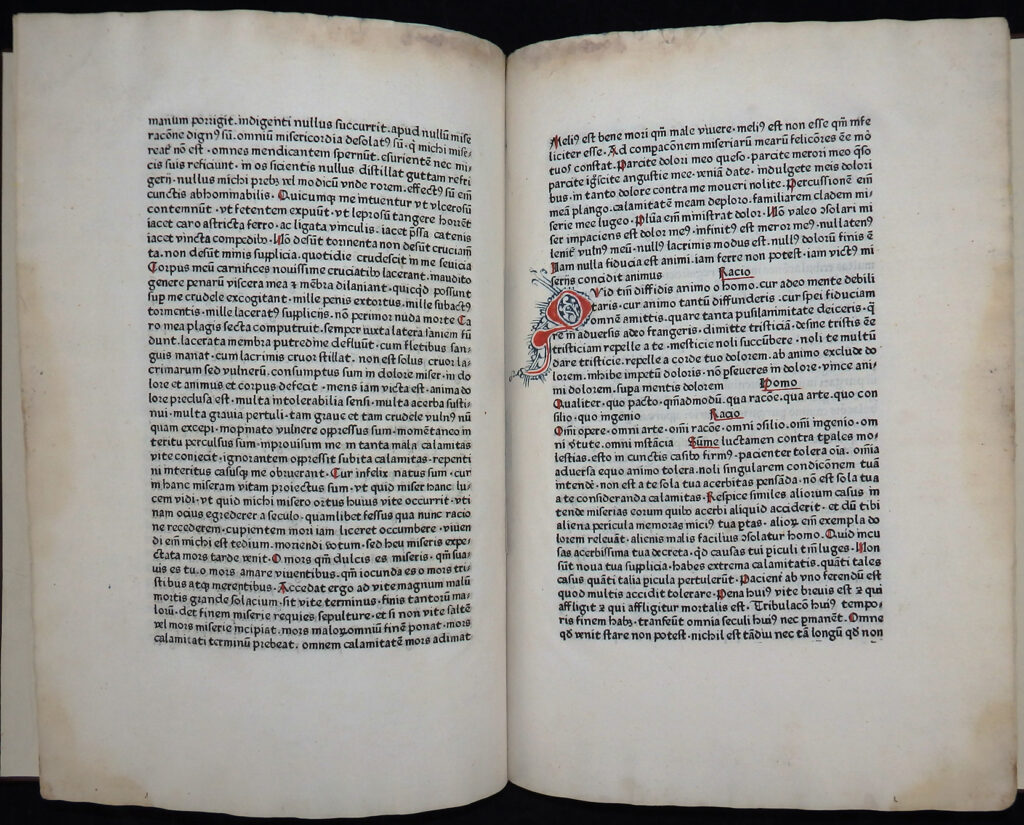 manum porrigit. indigenti nullus succurrit. apud nullũ mise
racõne dignꝰ sũ. omniũ misericordia desolatꝰ sũ. q̃ michi mise-
reat̃ nõ est. omnes mendicantem spernũt. esurientẽ nec mi
cis suis reficiunt. in os sicientis nullus distillat guttam refri
gerij. nullus michi prebꝫ vel modicũ vnde rorem. effectꝰ sũ em̃
cunctis abhominabilis. Quicumqꝫ me intuentur vt vlcerosũ
contemnũt. vt fetentem expuũt. vt leprosũ tangere horrẽt
iacet caro astricta ferro. ac ligata vinculis. iacet pſsa catenis
iacet vincta compedibꝰ. Nõ desũt tormenta non desũt cruciam̃
ta. non desũt mihi suplicia. quotidie crudescit in me seuicia
Corpus meũ carnifices nouissime cruciatibꝰ lacerant. inaudito
genere penarũ viscera mea ꝛ mẽbra dilaniant. quicq̃d possunt
sup me crudele excogitant. mille penis extortus. mille subactꝰ
tormentis. mille laceratꝰ supliciis. nõ perimor nuda morte Ca
ro mea plagis secta computruit. semper iuxta latera saniem fũ
dunt. lacerata membra putredine defluũt. cum fletibus san-
guis manat. cum lacrimis cruor stillat. non est solus cruor la-
crimarum sed vulnerũ. consumptus sum in dolore miser. in do
lore et animus et corpus defecit. mens iam victa est. anima do
lore preclusa est. multa intolerabilia sensi. multa acerba susti-
nui. multa grauia pertuli. tam graue et tam crudele vulnꝰ nũ
quam excepi. inopinato vulnere oppressus sum. momẽtaneo in
teritu perculsus sum. improuisum me in tanta mala calamitas
vite coniecit. ignorantem oppressit subita calamitas. repenti
ni interitus casusqꝫ me obruerant. Cur infelix natus sum. cur
in hanc miseram vitam proiectus sum. vt quid miser hanc lu-
cem vidi. vt quid michi misero ortus huius vite occurrit. vti
nam ocius egrederer a seculo. quam libet fessus qua nunc racio
ne recederem. cupientem mori iam liceret occumbere. viuen
di em̃ michi est tedium. moriendi votum. sed heu miseris expe-
ctata mors tarde venit. O mors qm̃ dulcis es miseris. qm̃ sua-
uis es tu. o mors amare viuentibus. qm̃ iocunda es o mors tri-
stibus atqꝫ merentibus. Accedat ergo ad vite magnum malũ
mortis grande solacium. sit vite terminus. finis tantorũ ma-
lorũ. det finem miserie requies sepulture. et si non vite saltẽ
vel mors miserie incipiat. mors maloꝝ omniũ finẽ ponat. mors
calamitati terminũ prebeat. omnem calamitatẽ mors adimat
Meliꝰ est bene mori qm̃ male viuere. meliꝰ est non esse qm̃ infe
liciter esse. Ad compacõnem miseriarũ mearũ felicõres ẽe mõ
tuos constat. Parcite dolori meo queso. parcite merori meo q̃so
parcite ig̃scite angustie mee. veniã date. indulgete meis dolori
bus. in tanto dolore contra me moueri nolite. Percussionẽ em̃
meã plango. calamitatẽ meam deploro. familiarem cladem mi-
serie mee lugeo. Plũa em̃ ministrat dolor. Nõ valeo ↄsolari mi
ser impaciens est dolor meꝰ. infinitꝰ est meror meꝰ. nullatenꝰ
lenit̃ vulnꝰ meũ. nullꝰ lacrimis modus est. nullꝰ dolorũ finis ẽ
Iam nulla fiducia est animi. iam ferre non potest. iam victꝰ mi
seriis concidit animus Racio
Qvid tm̃ diffidis animo o homo. cur adeo mente debili
taris. cur animo tantũ diffunderis. cur spei fiduciam
omnẽ amittis. quare tanta pusilanimitate deiceris. q̃
re in aduersis adeo frangeris. dimitte tristiciã. desine tristis ẽe
tristiciam repelle a te. mesticie noli succũbere. noli te multũ
dare tristicie. repelle a corde tuo dolorem. ab animo exclude do
lorem. inhibe impetũ doloris. nõ pseueres in dolore. vince ani-
mi dolorem. supa mentis dolorem Homo
Qualiter. quo pacto. q̃madmodũ. qua racõe. qua arte. quo con
silio. quo ingenio Racio
Om̃i opere. omni arte. om̃i racõe. omni ↄsilio. om̃i ingenio. om
ni v̓tute. omni instãcia Sume luctamen contra tpales mo-
lestias. esto in cunctis casibꝰ firmꝰ. pacienter tolera oĩa. om̃ia
aduersa equo animo tolera. noli singularem condicõnem tuã
intende. non est a te sola tua acerbitas pensãda. nõ est sola tua
a te consideranda calamitas. Respice similes aliorum casus in
tende miserias eorum quibꝰ acerbi aliquid acciderit. et dũ tibi
aliena pericula memoras miciꝰ tua ptas. alioꝝ em̃ exempla do
lorem releuãt. alienis malis facilius ↄsolatur homo. Quid incu
sas acerbissima tua decreta. q̃d causas tui piculi tm̃ luges. Non
sũt noua tua supplicia. habes extrema calamitatis. quãti tales
casus quãti talia picula pertulerũt. Pacient̃ ab vno ferendũ est
quod multis accidit tolerare. Pena huiꝰ vite breuis est ꝛ qui
affligit ꝛ qui affligitur mortalis est. Tribulacõ huiꝰ tempo-
ris finem habꝫ. transeũt omnia seculi huiꝰ nec pmanẽt. Omne
q̃d venit stare non potest. nichil est tãdiu nec tã longũ q̃d non